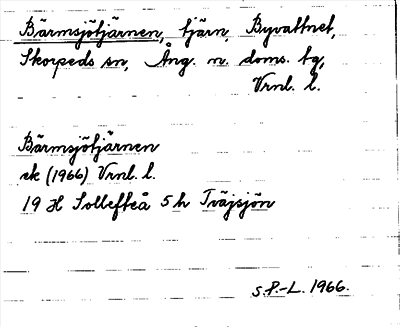 Bärmsjötjärnen, tjärn, Byvattnet,
Skorpeds sn, Ång. n. doms. tg,
Vrnl. l.
Bärmsjötjärnen
ek (1966) Vrnl. l.
19 H Sollefteå 5 h Tväjsjön
S.P.-L. 1966.